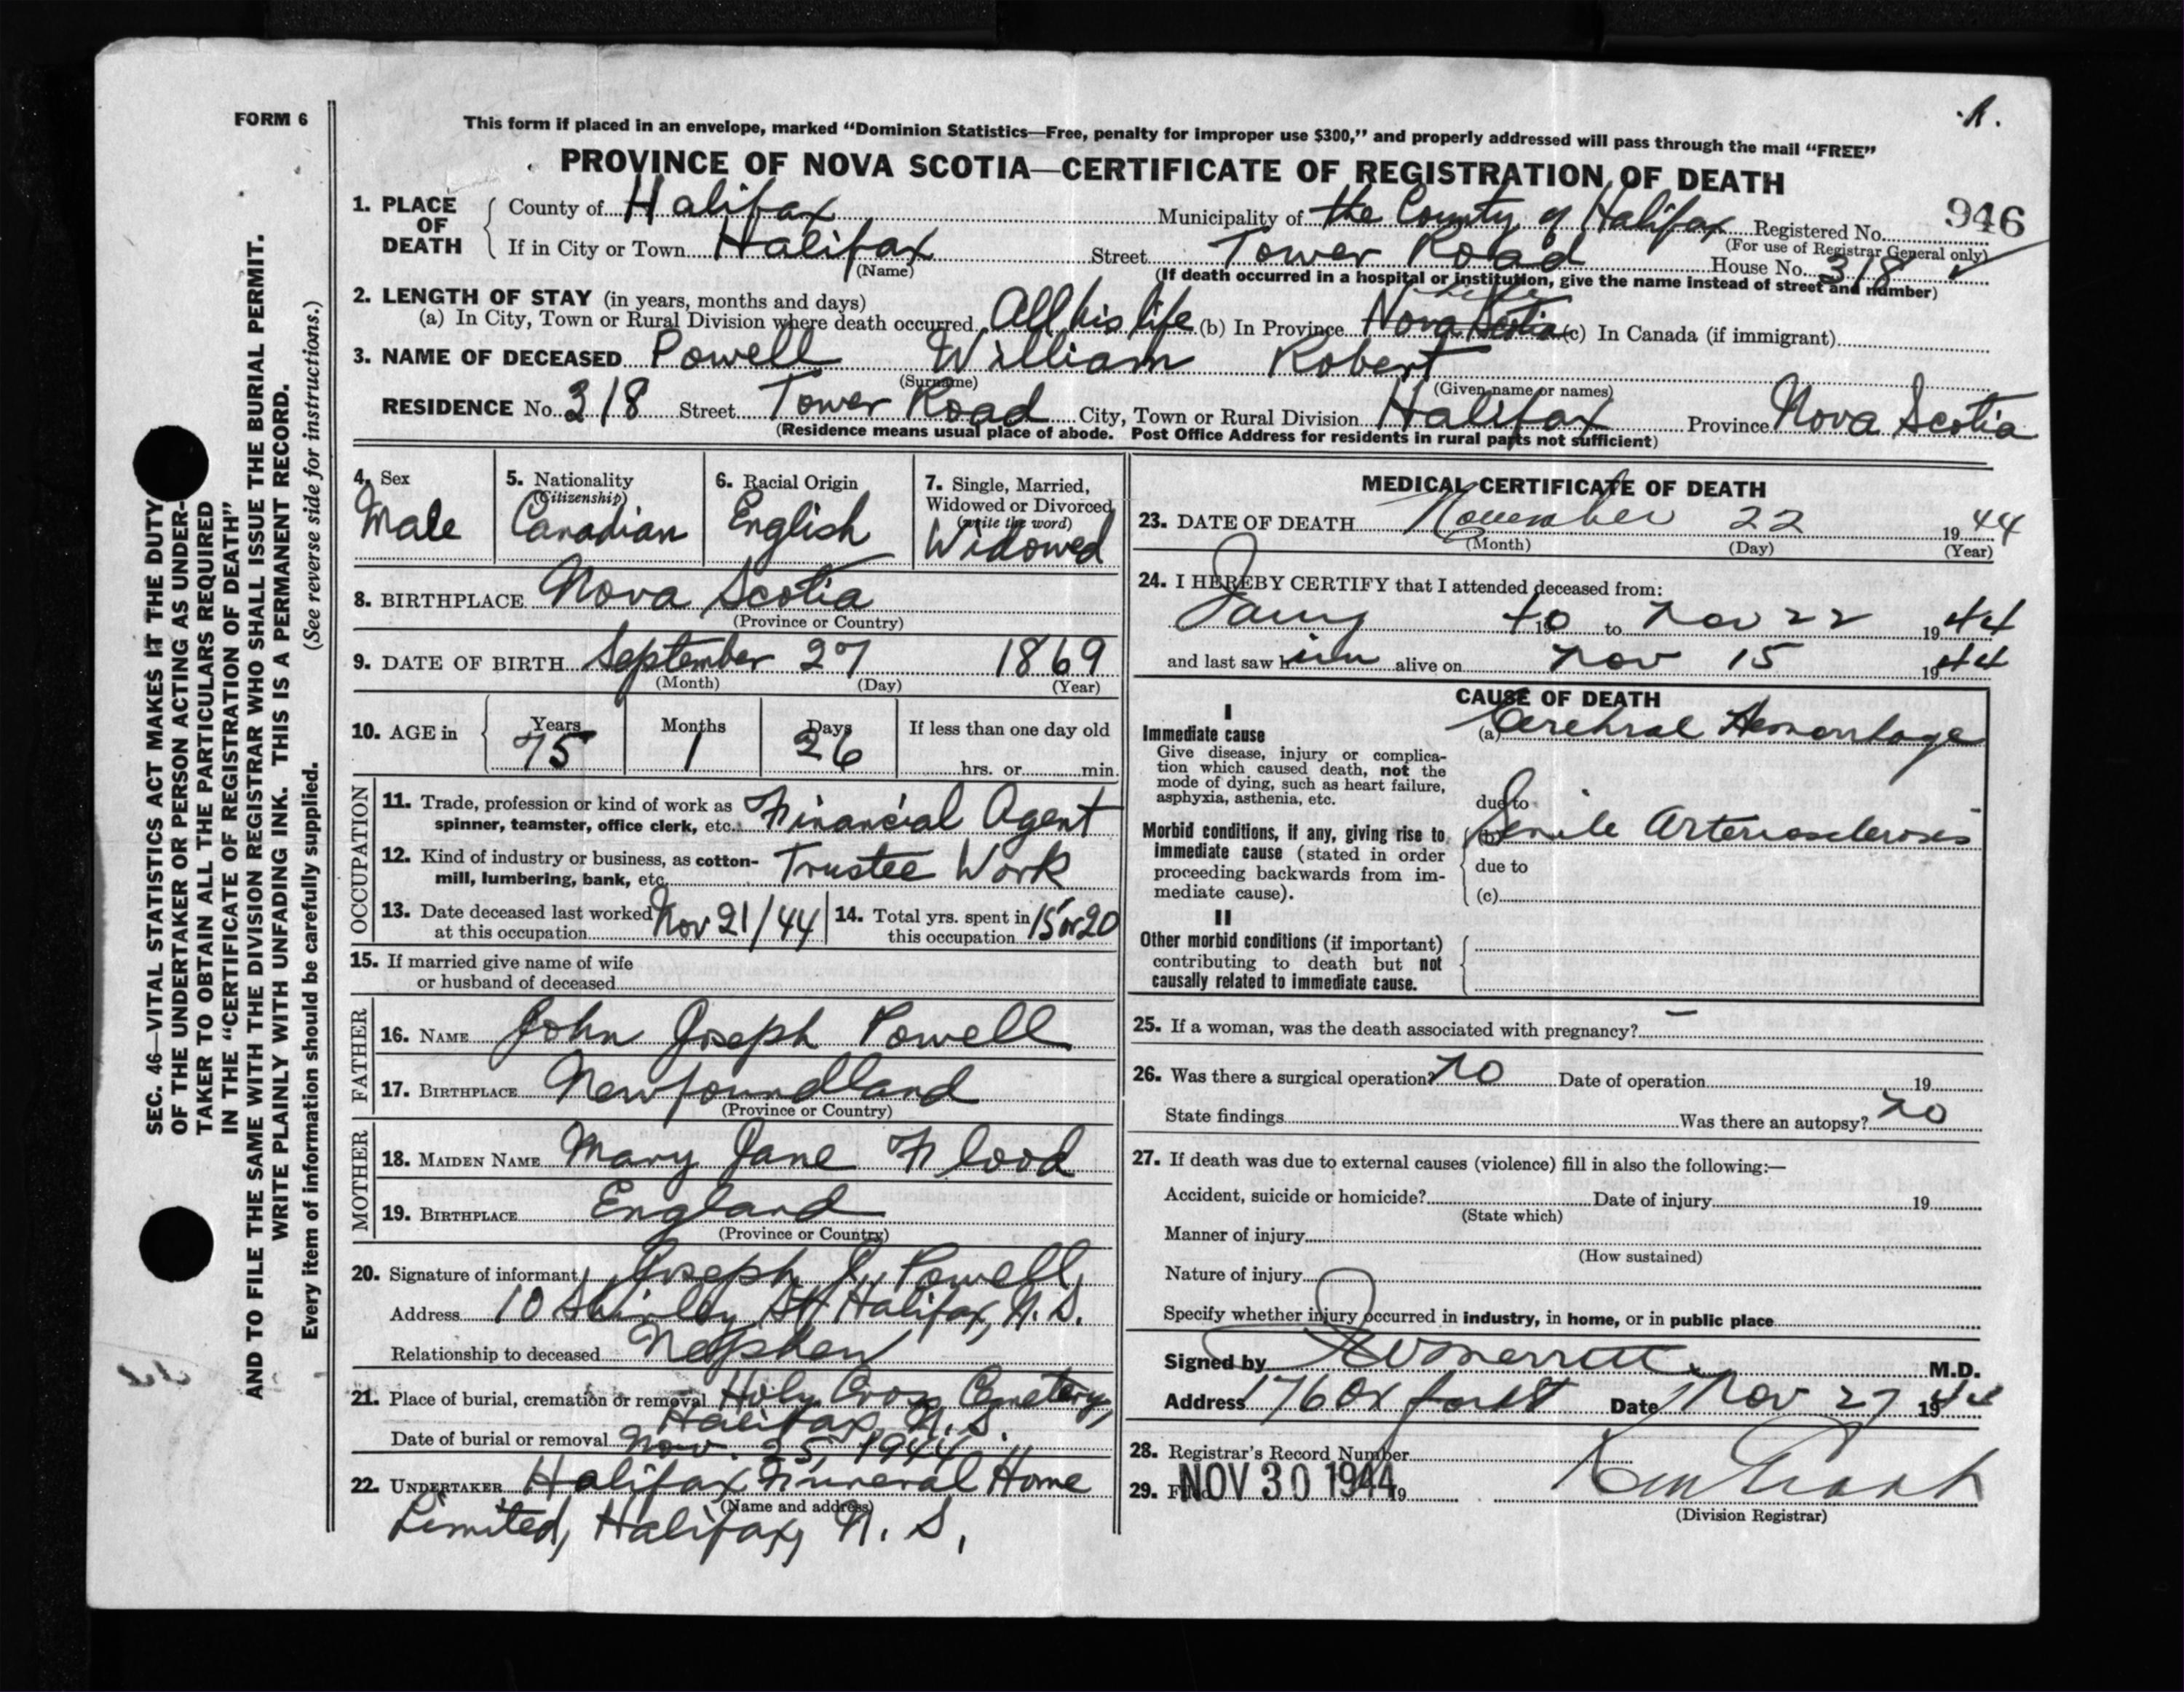 FORM 6
This form if placed in an envelope, marked “Dominion Statistics—Free, penalty for improper use $300,” and properly addressed will pass through the mail “FREE”
PROVINCE OF NOVA SCOTIA—CERTIFICATE OF REGISTRATION OF DEATH
1. PLACE OF DEATH
County of Halifax Municipality of the County of Halifax Registered No. 946
(For use of Registrar General only)
If in City or Town Halifax Street Tower Road House No. 318
(Name) (If death occurred in a hospital or institution, give the name instead of street and number)
2. LENGTH OF STAY (in years, months and days)
(a) In City, Town or Rural Division where death occurred All his life (b) In Province Nova Scotia (c) In Canada (if immigrant)
3. NAME OF DECEASED Powell William Robert
(Surname) (Given name or names)
RESIDENCE No. 318 Street Tower Road City, Town or Rural Division Halifax Province Nova Scotia
(Residence means usual place of abode. Post Office Address for residents in rural parts not sufficient)
4. Sex
Male
5. Nationality
(Citizenship)
Canadian
6. Racial Origin
English
7. Single, Married,
Widowed or Divorced
(write the word)
Widowed
8. BIRTHPLACE Nova Scotia
(Province or Country)
9. DATE OF BIRTH September 27 1869
(Month) (Day) (Year)
10. AGE in
Years Months Days If less than one day old
75 1 26 hrs. or min.
OCCUPATION
11. Trade, profession or kind of work as
spinner, teamster, office clerk, etc. Financial Agent
12. Kind of industry or business, as cotton-
mill, lumbering, bank, etc. Trustee Work
13. Date deceased last worked
at this occupation Nov 21/44
14. Total yrs. spent in
this occupation 15 or 20
15. If married give name of wife
or husband of deceased
FATHER
16. NAME John Joseph Powell
17. BIRTHPLACE Newfoundland
(Province or Country)
MOTHER
18. MAIDEN NAME Mary Jane Flood
19. BIRTHPLACE England
(Province or Country)
20. Signature of informant Joseph J. Powell
Address 10 Shirley St Halifax, N. S.
Relationship to deceased Nephew
21. Place of burial, cremation or removal Holy Cross Cemetery,
Halifax, N. S.
Date of burial or removal Nov. 25, 1944
22. UNDERTAKER Halifax Funeral Home
(Name and address)
Limited, Halifax, N. S.
MEDICAL CERTIFICATE OF DEATH
23. DATE OF DEATH November 22 1944
(Month) (Day) (Year)
24. I HEREBY CERTIFY that I attended deceased from:
19 40 to Nov 22 1944
and last saw him alive on Nov 15 1944
CAUSE OF DEATH
I
Immediate cause
Give disease, injury or complica-
tion which caused death, not the
mode of dying, such as heart failure,
asphyxia, asthenia, etc.
(a) Cerebral Hemorrhage
due to
Morbid conditions, if any, giving rise to
immediate cause (stated in order
proceeding backwards from im-
mediate cause).
(b) Senile Arteriosclerosis
due to
(c)
II
Other morbid conditions (if important)
contributing to death but not
causally related to immediate cause.
25. If a woman, was the death associated with pregnancy? –
26. Was there a surgical operation? no Date of operation 19
State findings Was there an autopsy? no
27. If death was due to external causes (violence) fill in also the following:—
Accident, suicide or homicide? Date of injury 19
(State which)
Manner of injury
(How sustained)
Nature of injury
Specify whether injury occurred in industry, in home, or in public place
Signed by Merritt M.D.
Address 176 Oxford St Date Nov 27 1944
28. Registrar's Record Number
29. NOV 30 1944 19
(Division Registrar)
SEC. 46—VITAL STATISTICS ACT MAKES IT THE DUTY
OF THE UNDERTAKER OR PERSON ACTING AS UNDER-
TAKER TO OBTAIN ALL THE PARTICULARS REQUIRED
IN THE “CERTIFICATE OF REGISTRATION OF DEATH”
AND TO FILE THE SAME WITH THE DIVISION REGISTRAR WHO SHALL ISSUE THE BURIAL PERMIT.
WRITE PLAINLY WITH UNFADING INK. THIS IS A PERMANENT RECORD.
Every item of information should be carefully supplied. (See reverse side for instructions.)